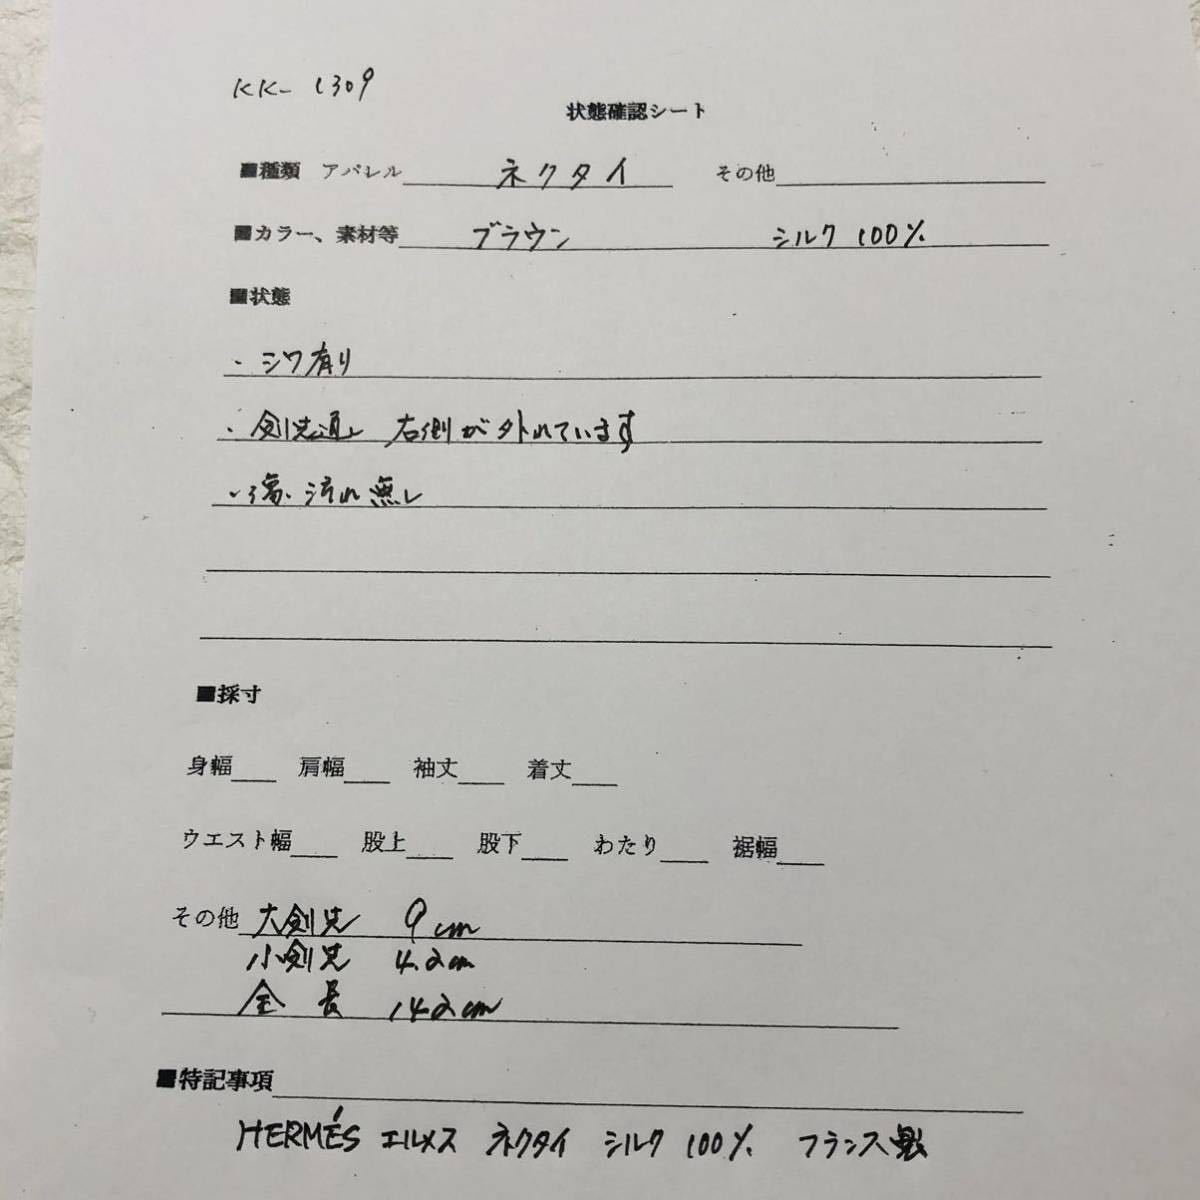 KK- 1309
状態確認シート
■種類 アパレル ネクタイ その他
■カラー、素材等 ブラウン シルク 100%
■状態
・シワ有り
・剣先通し 右側が外れています
・傷、汚れ無し
■採寸
身幅 肩幅 袖丈 着丈
ウエスト幅 股上 股下 わたり 裾幅
その他 大剣先 9cm
小剣先 4.2cm
全長 142cm
■特記事項
HERMÉS エルメス ネクタイ シルク 100% フランス製